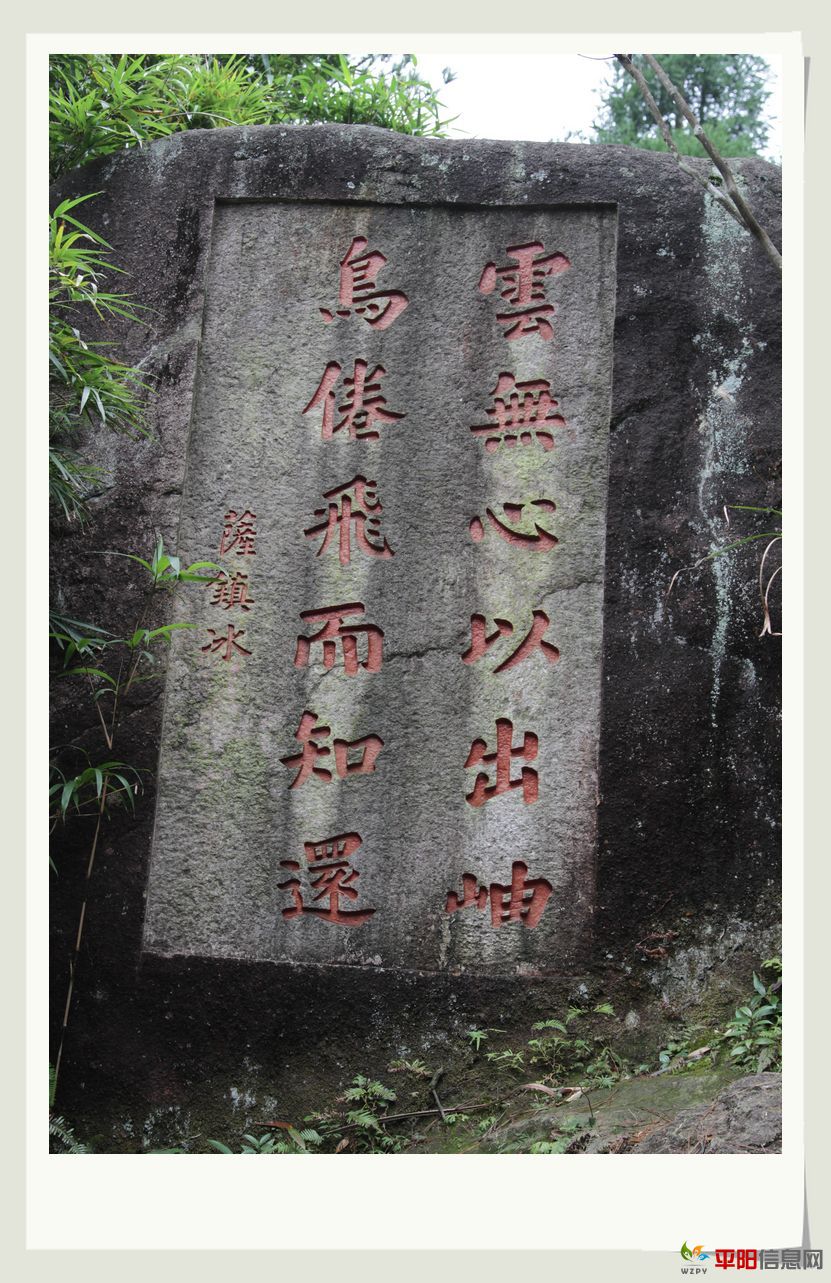 雲無心以出岫
鳥倦飛而知還
薩鎮冰
WZPY 平阳信息网